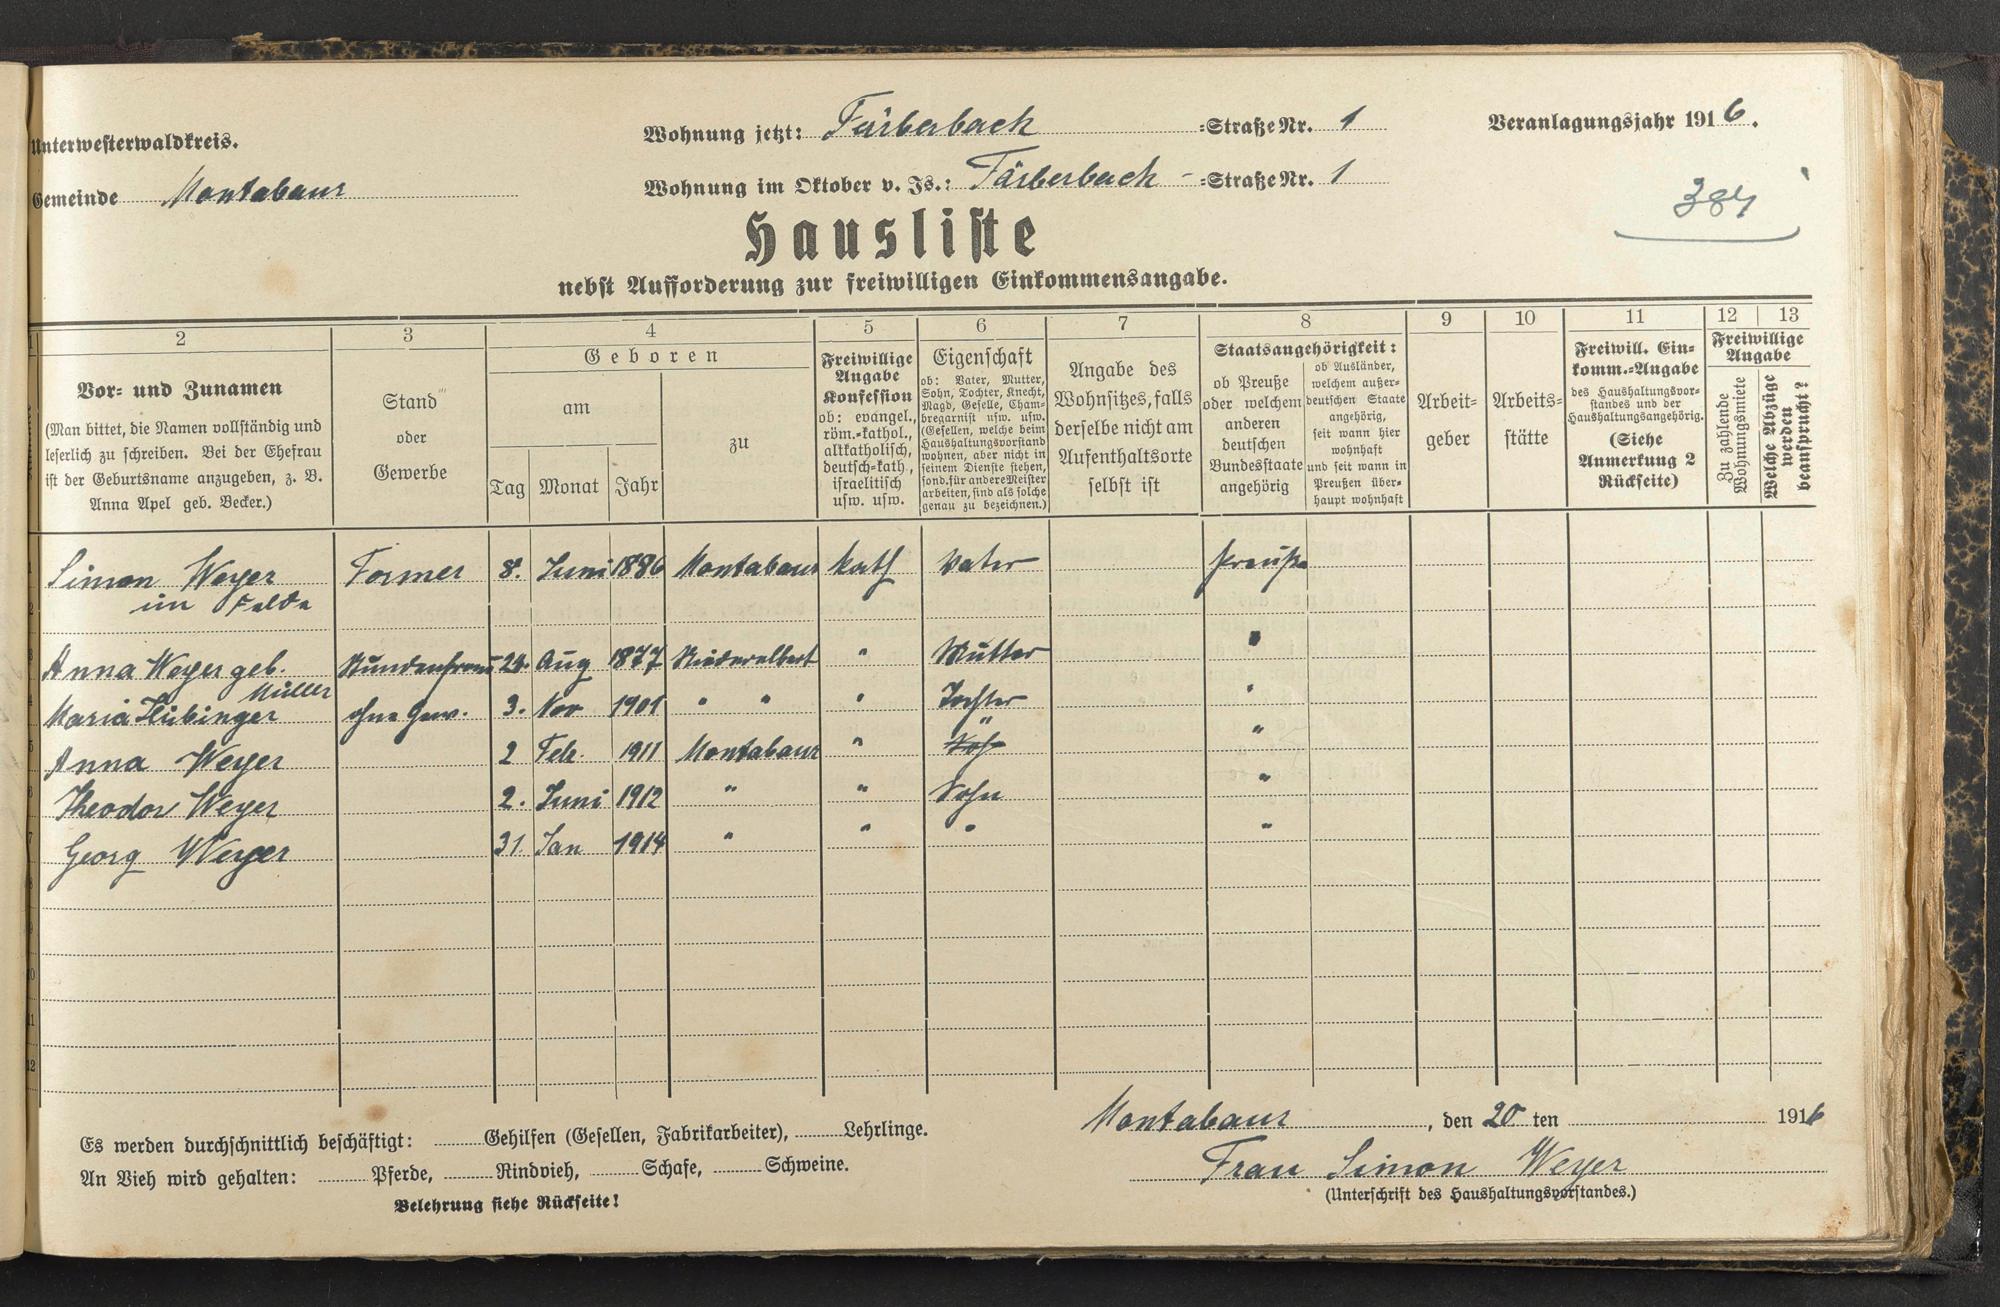 Unterwesterwaldkreis.
Wohnung jetzt: Färberbach =Straße Nr. 1
Veranlagungsjahr 1916.
Gemeinde Montabaur
Wohnung im Oktober v. Js.: Färberbach - =Straße Nr. 1
384
Hausliste
nebst Aufforderung zur freiwilligen Einkommensangabe.
2 3 4 5 6 7 8 9 10 11 12 13
Vor- und Zunamen
(Man bittet, die Namen vollständig und
leserlich zu schreiben. Bei der Ehefrau
ist der Geburtsname anzugeben, z. B.
Anna Apel geb. Becker.)
Stand
oder
Gewerbe
Geboren
am
Tag Monat Jahr
zu
Freiwillige
Angabe
Konfession
ob: evangel.,
röm.-kathol.,
altkatholisch,
deutsch-kath.,
israelitisch
usw. usw.
Eigenschaft
ob: Vater, Mutter,
Sohn, Tochter, Knecht,
Magd, Geselle, Cham-
bregarnist usw. usw.
(Gesellen, welche beim
Haushaltungsvorstand
wohnen, aber nicht in
seinem Dienste stehen,
sond. für andere Meister
arbeiten, sind als solche
genau zu bezeichnen.)
Angabe des
Wohnsitzes, falls
derselbe nicht am
Aufenthaltsorte
selbst ist
Staatsangehörigkeit:
ob Preuße
oder welchem
anderen
deutschen
Bundesstaate
angehörig
ob Ausländer,
welchem außer-
deutschen Staate
angehörig,
seit wann hier
wohnhaft
und seit wann in
Preußen über-
haupt wohnhaft
Arbeit-
geber
Arbeits-
stätte
Freiwill. Ein-
komm.-Angabe
des Haushaltungsvor-
standes und der
Haushaltungsangehörig.
(Siehe
Anmerkung 2
Rückseite)
Freiwillige
Angabe
Zu zahlende
Wohnungsmiete
Welche Abzüge
werden
beansprucht?
Simon Weyer Former 8. Juni 1886 Montabaur kath Vater Preuße
im Felde
Anna Weyer geb. Stundenfrau 24. Aug 1877 Niederelbert " Mutter "
Müller
Maria Hübinger ohne Gew. 3. Nov 1901 " " " Tochter "
Anna Weyer 2 Feb. 1911 Montabaur " " "
Theodor Weyer 2. Juni 1912 " " Sohn "
Georg Weyer 31. Jan 1914 " " " "
Es werden durchschnittlich beschäftigt: Gehilfen (Gesellen, Fabrikarbeiter), Lehrlinge.
An Vieh wird gehalten: Pferde, Rindvieh, Schafe, Schweine.
Belehrung siehe Rückseite!
Montabaur, den 20 ten 1916
Frau Simon Weyer
(Unterschrift des Haushaltungsvorstandes.)